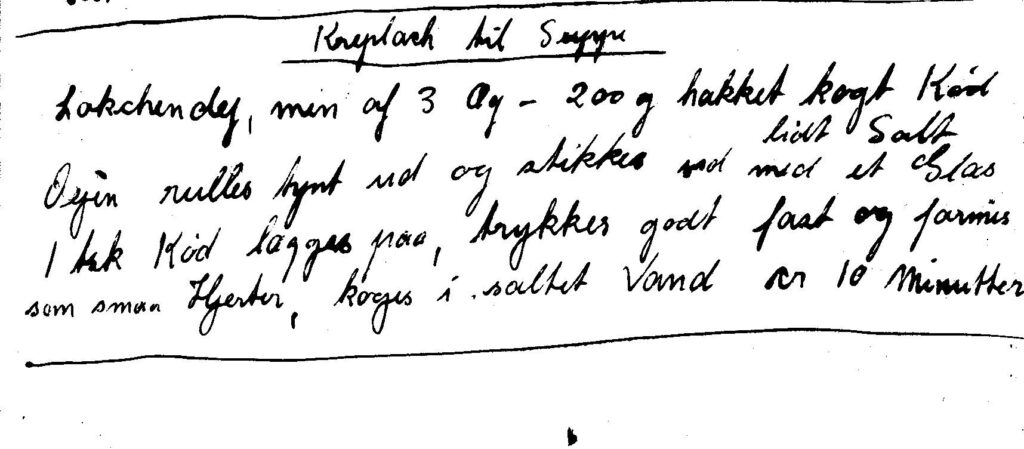 Kreplach til Suppe
Lokchendej, men af 3 Æg - 200 g hakket kogt Kød
lidt Salt
Dejen rulles tynt ud og stikkes ud med et Glas
1 tsk Kød lægges paa, trykkes godt fast og formes
som smaa Hjerter, koges i saltet Vand 10 Minutter